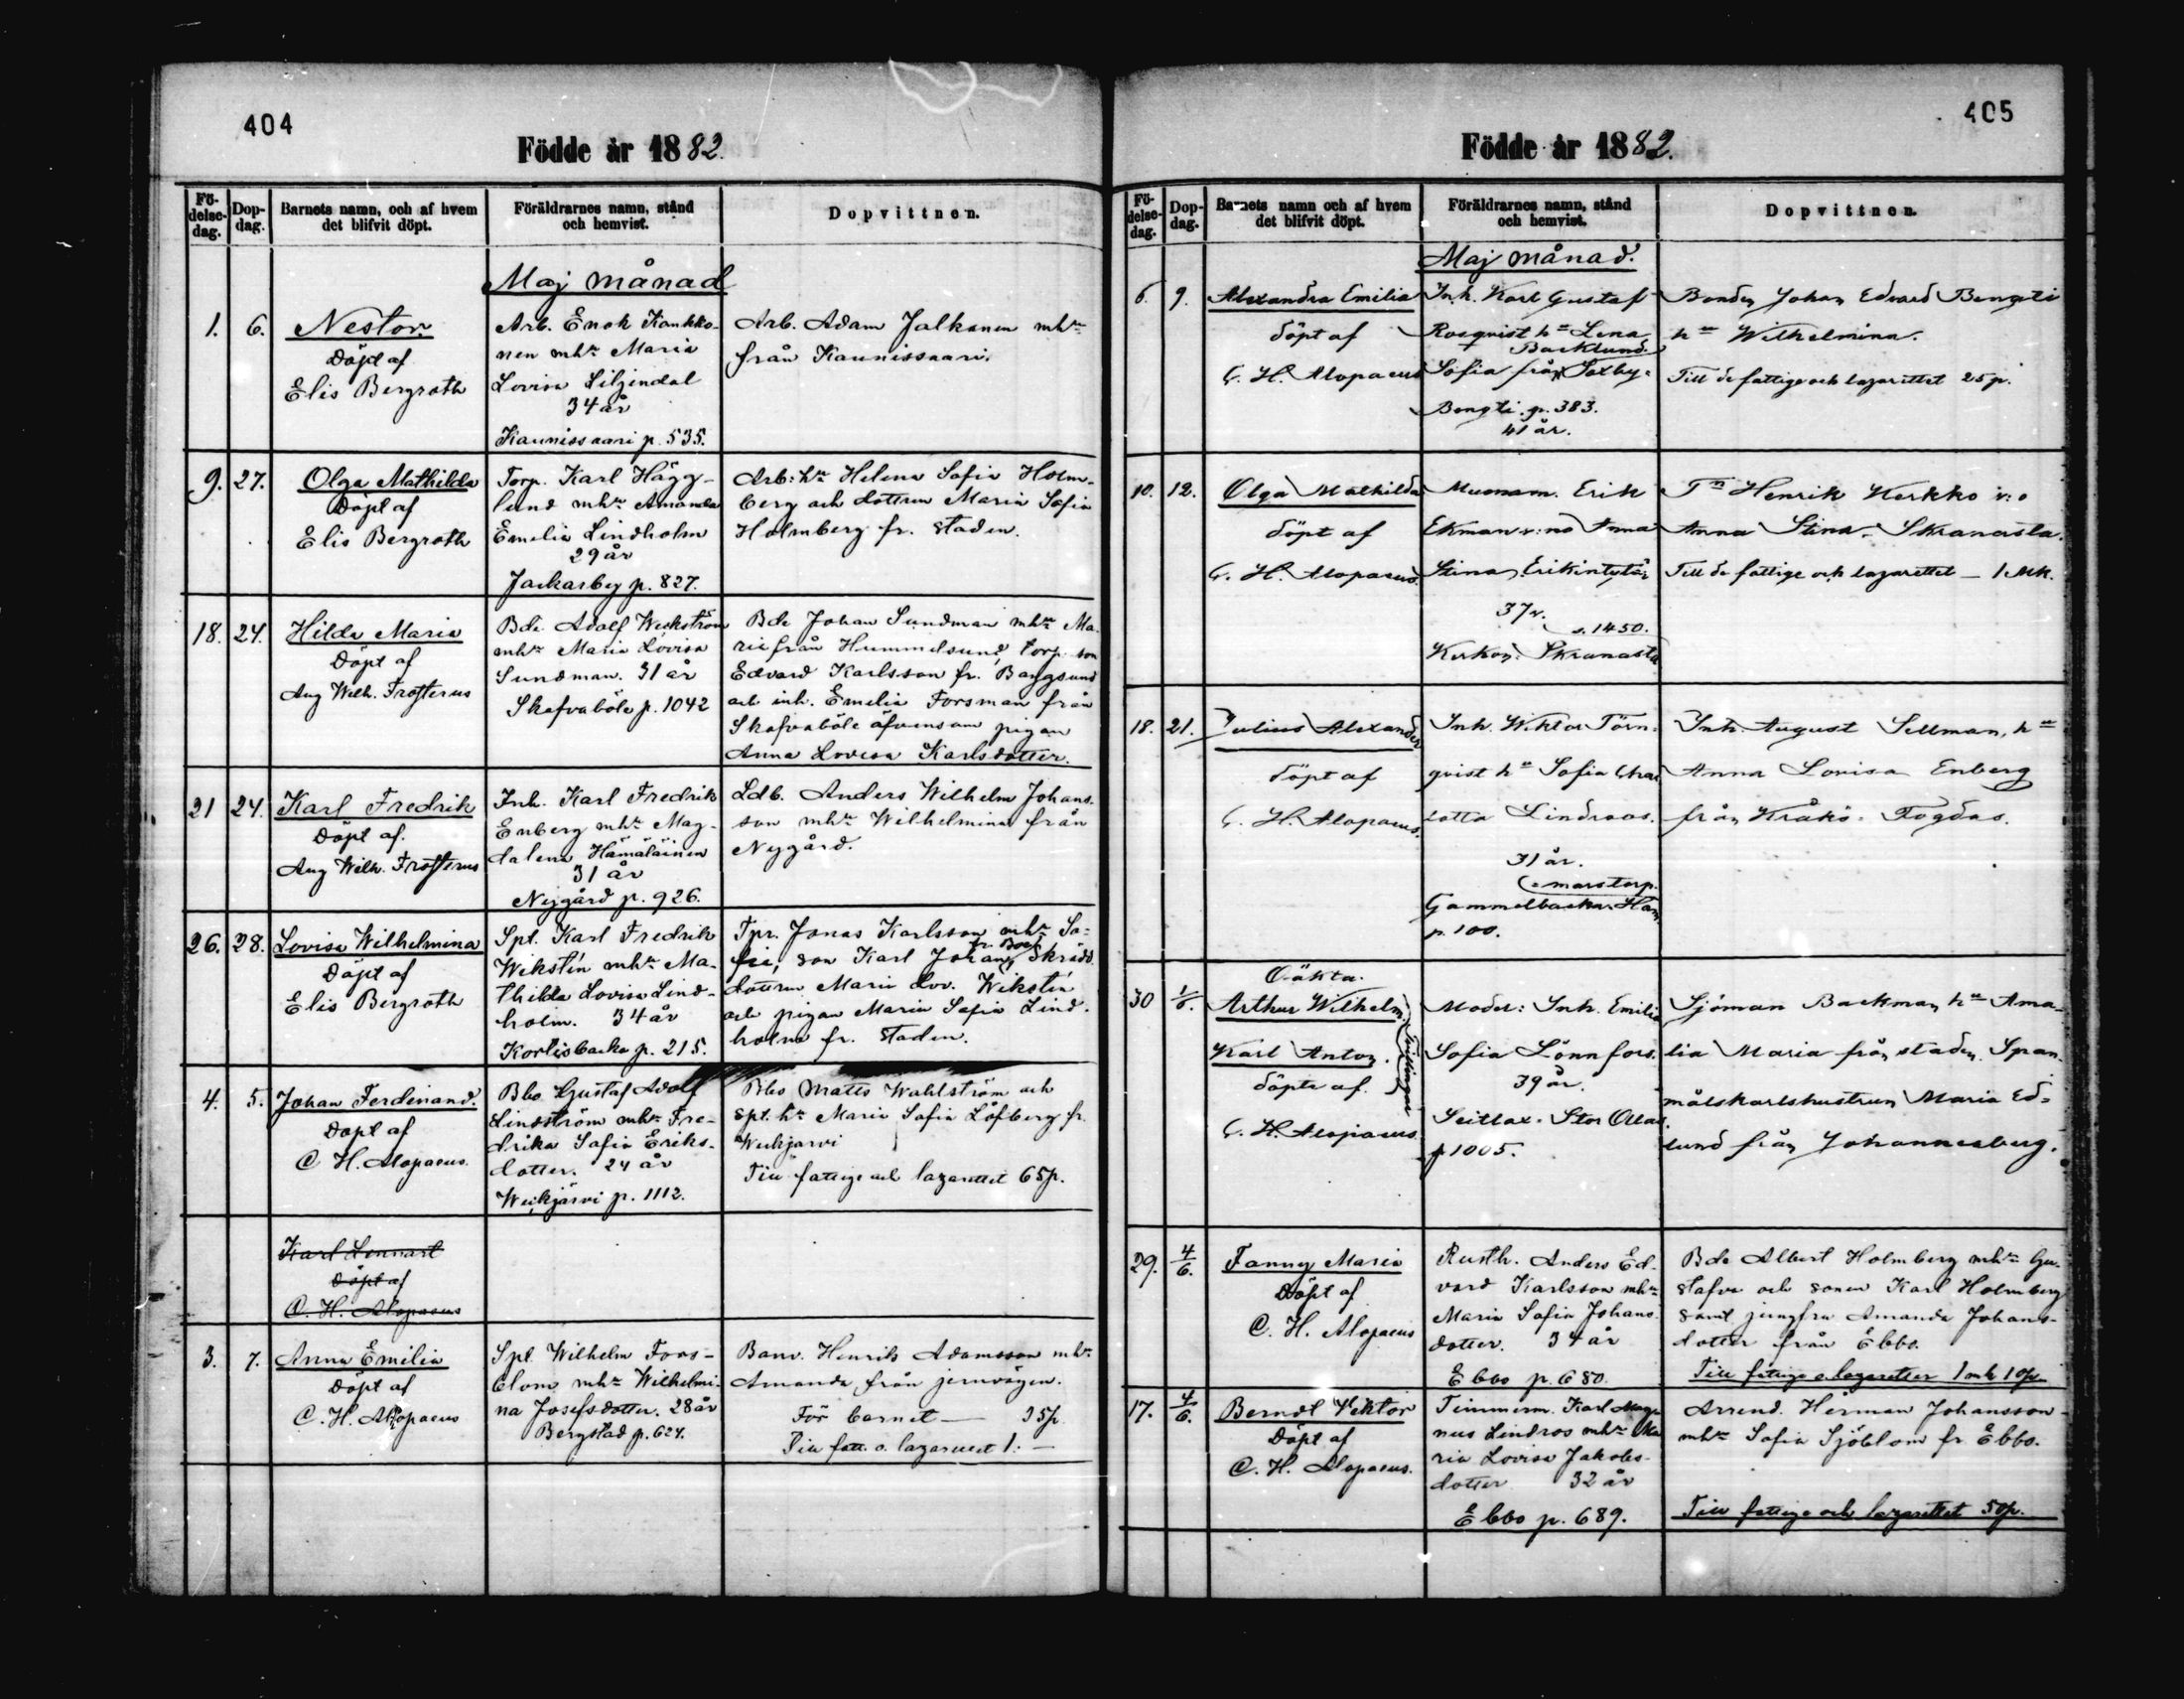 404
Födde år 1882.
Fö-
delse-
dag.
Dop-
dag.
Barnets namn, och af hvem
det blifvit döpt.
Föräldrarnes namn, stånd
och hemvist.
Dopvittnen.
Maj månad
1. 6.
Nestor.
Döpt af
Elis Bergroth
Arb. Enok Kankko-
nen mhu Maria
Lovisa Liljendal
34 år
Kaunissaari p. 535.
Arb. Adam Jalkanen mhu
från Kaunissaari.
9. 27.
Olga Mathilda
Döpt af
Elis Bergroth
Torp. Karl Hägg-
lund mhu Amanda
Emelia Lindholm
29 år
Jackarby p. 827.
Arb: hu Helena Sofia Holm-
berg och dottren Maria Sofia
Holmberg fr. staden.
18. 24.
Hilda Maria
Döpt af
Aug Wilh. Frosterus
Bde. Adolf Weckström
mhu Maria Lovisa
Sundman. 31 år
Skafvaböle p. 1042
Bde Johan Sundman mhu Ma-
ria från Hummelsund, torp. son
Edvard Karlsson fr. Bangsund
och inh. Emelia Forsman från
Skafvaböle äfvensom pigan
Anna Lovisa Karlsdotter.
21 24.
Karl Fredrik
Döpt af.
Aug Wilh. Frosterus
Inh. Karl Fredrik
Enberg mhu Mag-
dalena Hämäläinen
31 år
Nygård p. 926.
Ldb. Anders Wilhelm Johans-
son mhu Wilhelmina från
Nygård.
26. 28.
Lovisa Wilhelmina
Döpt af
Elis Bergroth
Spt. Karl Fredrik
Wikstén mhu Ma-
thilda Lovisa Lind-
holm. 34 år
Kortisbacka p. 215.
Tpr. Jonas Karlsson mhu So-
fia, son Karl Johan, Skrädd.
dottren Maria Lov. Wikstén
och pigan Maria Sofia Lind-
holm fr. staden.
4. 5.
Johan Ferdinand.
Döpt af
C. H. Alopaeus.
Bbo Gustaf Adolf
Lindström mhu Fre-
drika Sofia Eriks-
dotter. 24 år
Weckjärvi p. 1112.
Bbo Matts Wahlström och
spt. hu Maria Sofia Löfberg fr.
Weckjärvi
Till fattige och lazarettet 65p.
Karl Lennart
Döpt af
C. H. Alopaeus
3. 7.
Anna Emilia
Döpt af
C. H. Alopaeus
Spt. Wilhelm Fors-
blom mhu Wilhelmi-
na Josefsdotter. 28 år
Bergstad p. 624.
Banv. Henrik Adamsson mhu
Amanda från jernvägen.
För barnet — 25p
Till fatt. o. lazarettet 1: —
405
Födde år 1882.
Fö-
delse-
dag.
Dop-
dag.
Barnets namn och af hvem
det blifvit döpt.
Föräldrarnes namn, stånd
och hemvist.
Dopvittnen.
Maj månad.
6. 9.
Alexandra Emilia
döpt af
C. H. Alopaeus
Inh. Karl Gustaf
Rosqvist hu Lena
Backlund.
Sofia från Saxby-
Bengti. p. 383.
41 år.
Bonden Johan Edvard Bengti
hu Wilhelmina.
Till de fattige och lazarettet 25p.
10. 12.
Olga Mathilda
döpt af
C. H. Alopaeus.
Muonam. Erik
Ekman v:mo Anna
Stina Erikintytär
37 v.
s. 1450.
Kerkon. Skranasta
Tn Henrik Kerkko v:o
Anna Stina. Skranasta.
Till de fattige och lazarettet — 1 Mk.
18. 21.
Julius Alexander
döpt af
C. H. Alopaeus.
Inh. Wiktor Törn-
qvist hu Sofia Char-
lotta Lindroos.
31 år.
marstorp.
Gammelbacka. Ham-
p. 100.
Inh. August Sellman, hu
Anna Lovisa Enberg
från Kråkö. Fogdas.
30 1/6.
Oäkta.
Arthur Wilhelm.
Karl Anton.
Tvillingar
döpte af
C. H. Alopaeus
Moder: Inh. Emilia
Sofia Lönnfors.
39 år.
Seitlax. Stor Olas.
p 1005.
Sjöman Backman hu Ama-
lia Maria från staden. Span-
målskarlshustrun Maria Ed-
lund från Johannesberg.
29. 4/6.
Fanny Maria
Döpt af
C. H. Alopaeus
Rusth. Anders Ed-
vard Karlsson mhu
Maria Sofia Johans-
dotter. 34 år
Ebbo p. 680.
Bde Albert Holmberg mhu Gu-
stafva och sonen Karl Holmberg
samt jungfru Amanda Johans-
dotter från Ebbo.
Till fattige o lazarettet 1 mk 10p
17. 4/6.
Berndt Viktor
Döpt af
C. H. Alopaeus.
Timmerm. Karl Mag-
nus Lindros mhu Ma-
ria Lovisa Jakobs-
dotter 32 år
Ebbo p. 689.
Arrend. Herman Johansson
mhu Sofia Sjöblom fr. Ebbo.
Till fattige och lazarettet 50p.